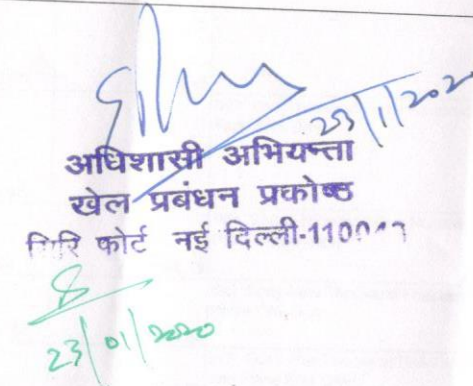 23/1/2020
अधिशासी अभियन्ता
खेल प्रबंधन प्रकोष्ठ
सिरि फोर्ट नई दिल्ली-1100
23/01/2020